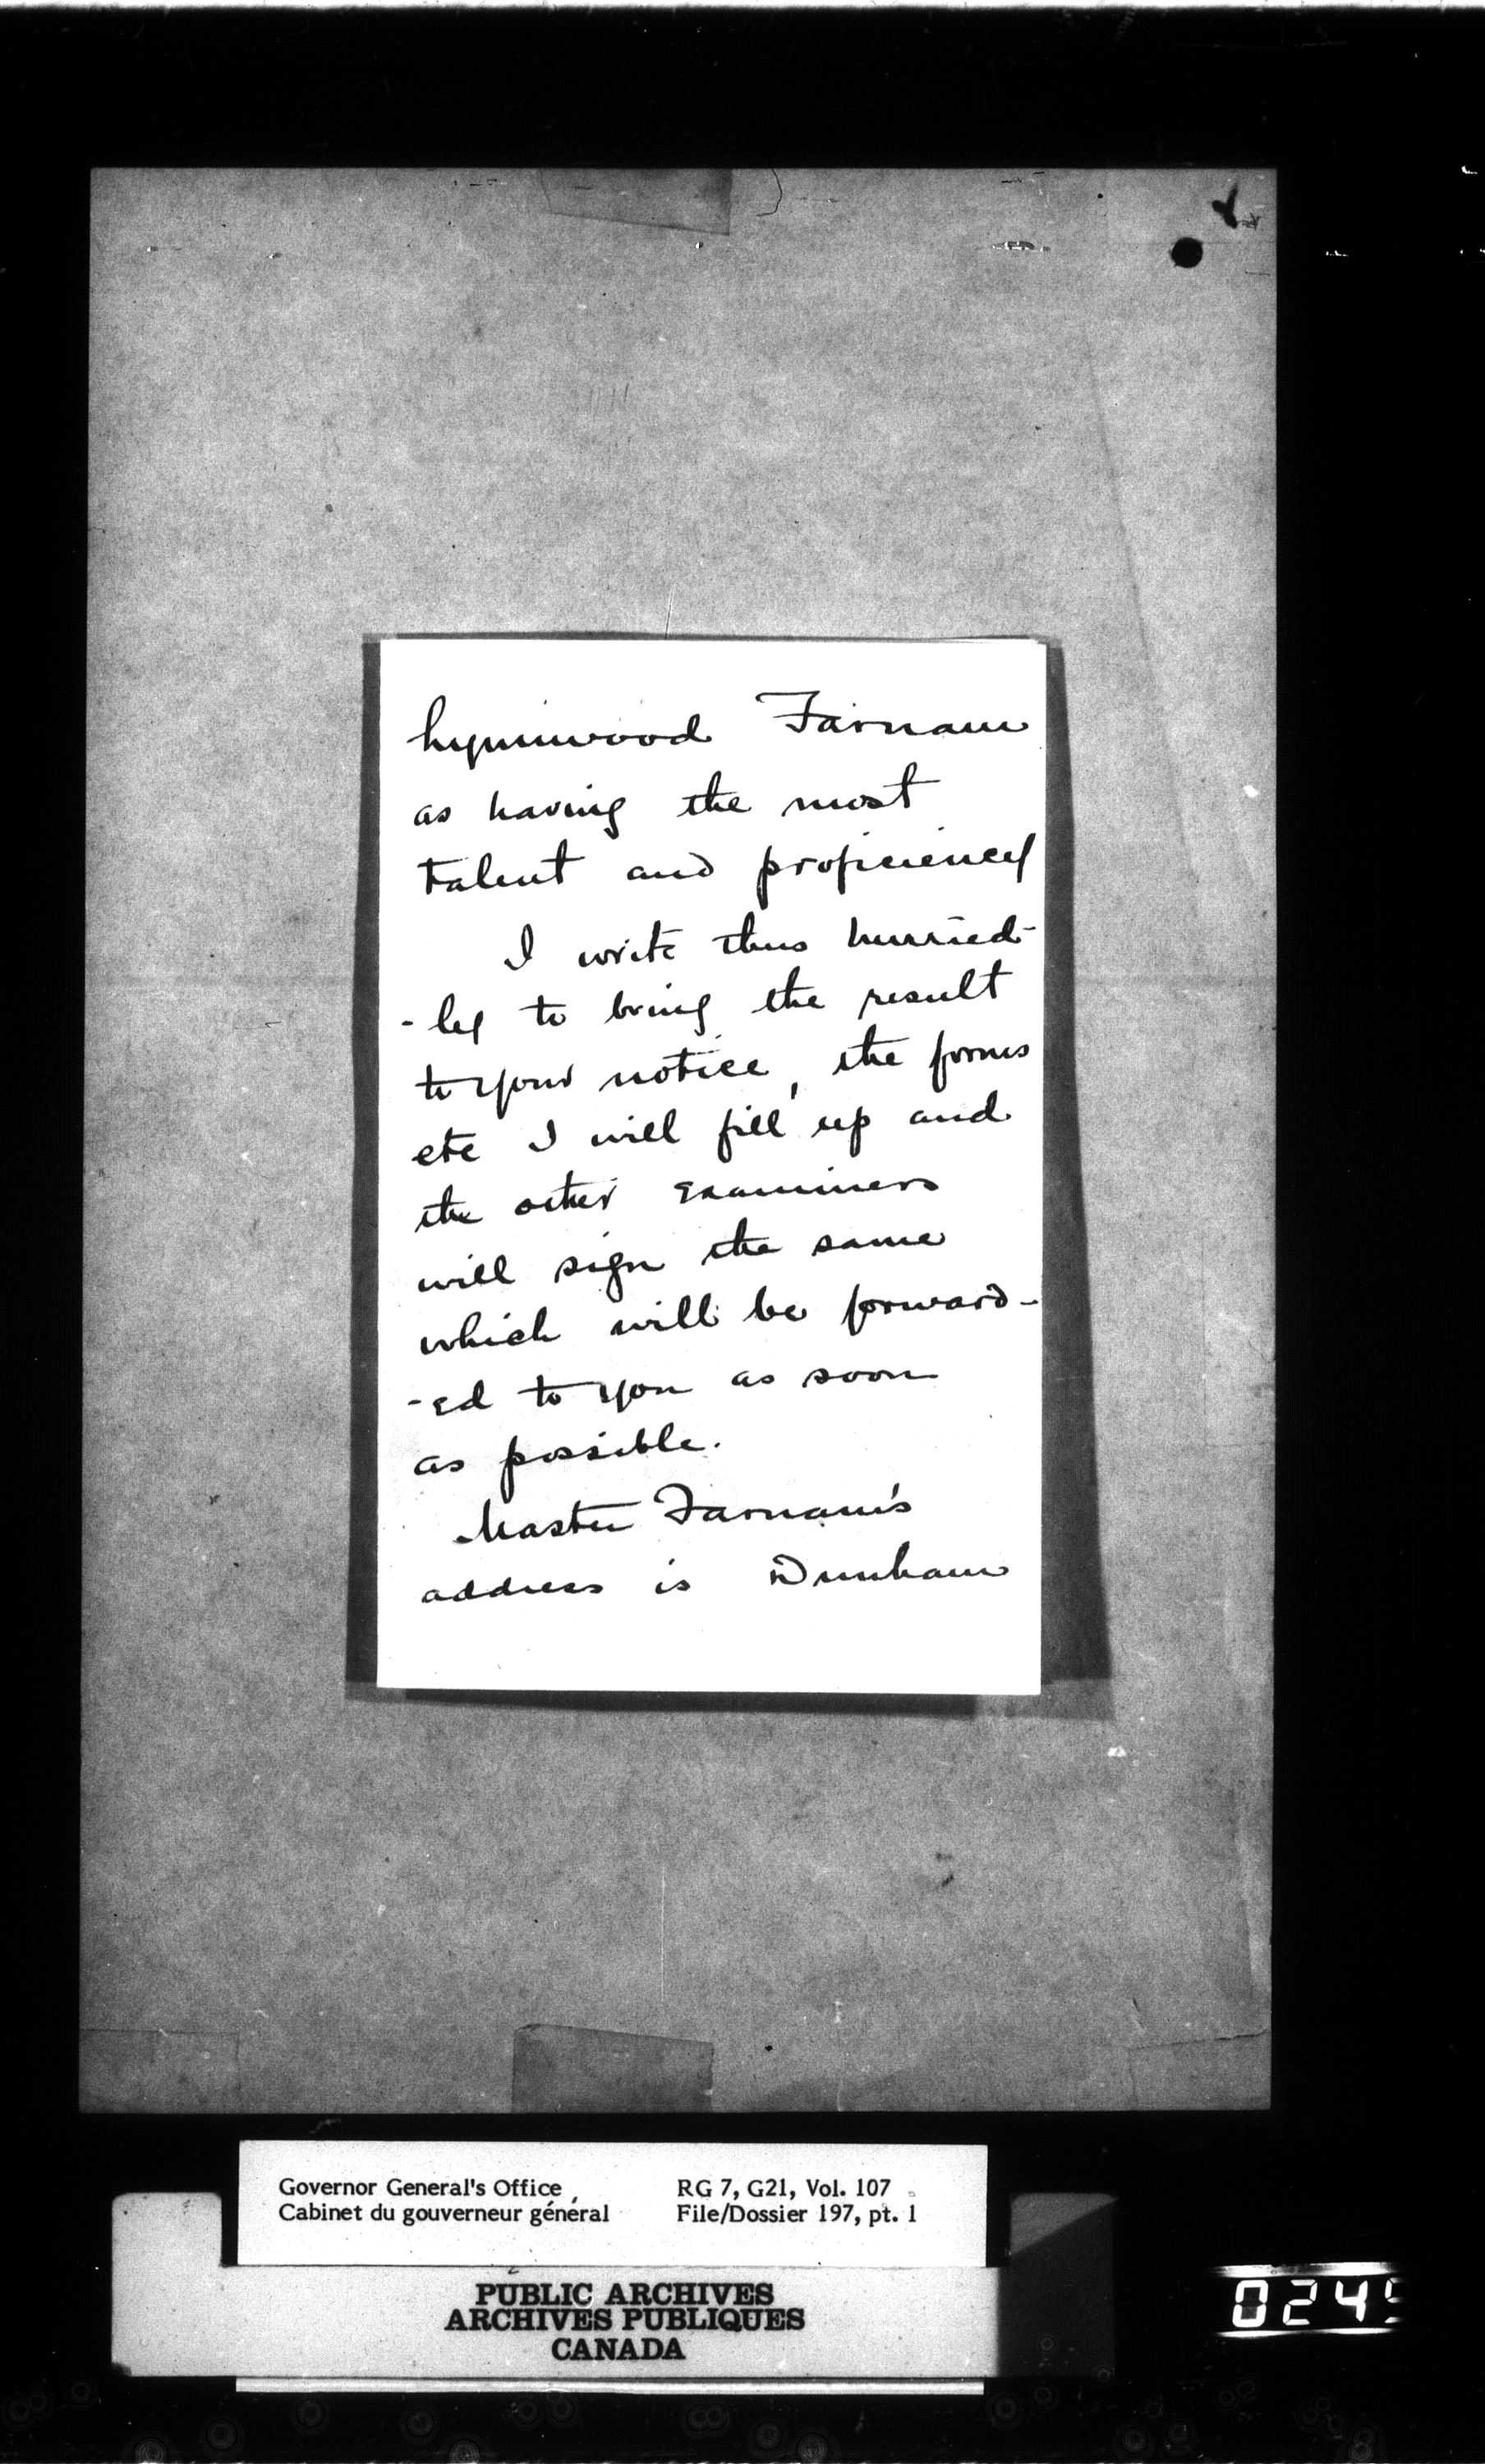 Lynnwood Farnam
as having the most
talent and proficiency
I write thus hurried-
-ly to bring the result
to your notice, the forms
etc I will fill up and
the other Examiners
will sign the same
which will be forward-
-ed to you as soon
as possible.
Master Farnam's
address is Dunham
Governor General's Office RG 7, G21, Vol. 107
Cabinet du gouverneur général File/Dossier 197, pt. 1
PUBLIC ARCHIVES
ARCHIVES PUBLIQUES
CANADA